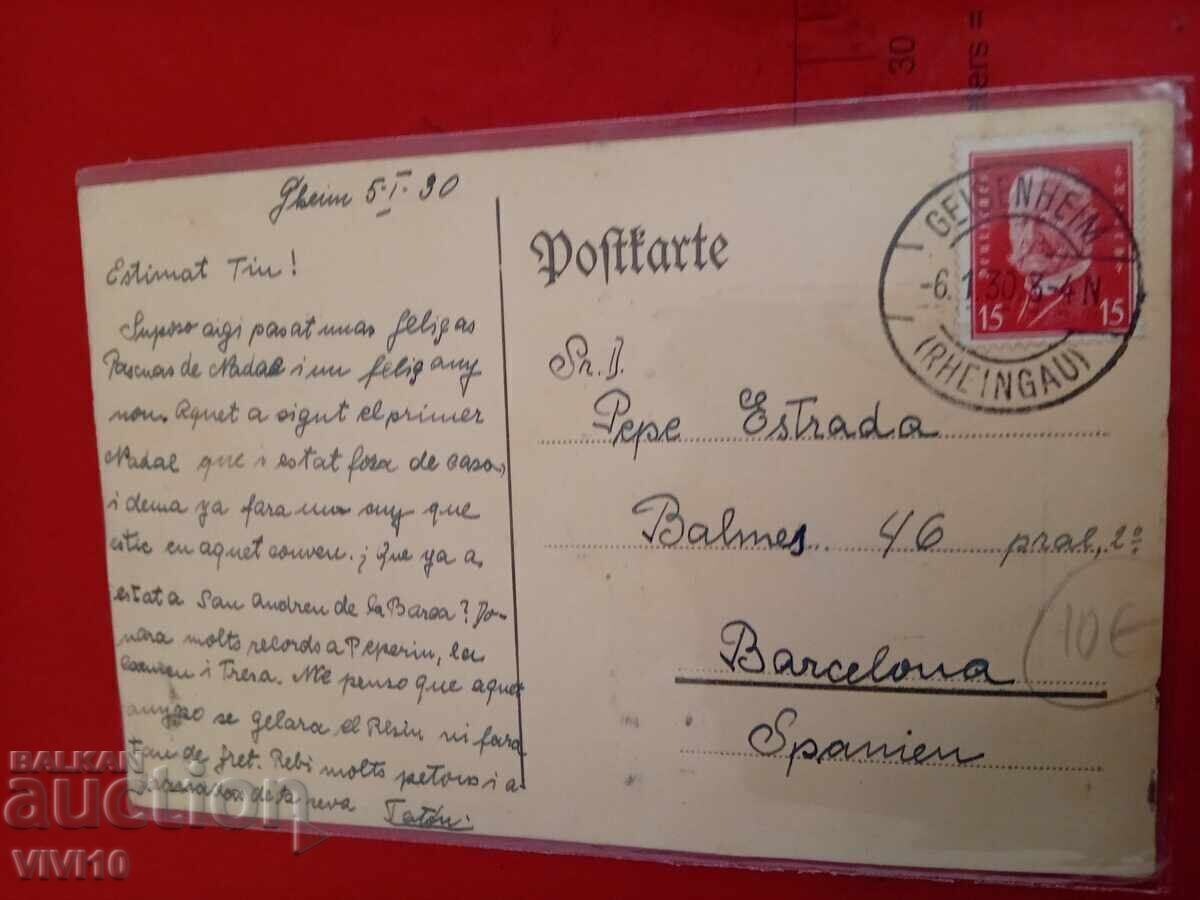 30
meters =
Gheim 5-I-30
Estimat Tiu!
Suposo aigi pasat unas feligas
Pascuas de Nadal i un felig any
nou. Aquet a sigut el primer
Nadal que i estat fora de casa,
i dema ya fara un any que
estic en aquet conven. ¡ Que ya a
estat a San Andreu de la Barca? Do-
nara molts recordsa Peperin, la
i Tresa. Me penso que aquet
any no se gelara el Rhin ni fara
tan de fret. Rebi molts petons i a
de la seva Tatón.
Postkarte
Sr. D.
Pepe Estrada
Balmes 46 pral, 2º
Barcelona
Spanien
10€
GEISENHEIM
-6.1.30.3-4N
(RHEINGAU)
DEUTSCHES
15 15
BALKAN
auction
VIVI10